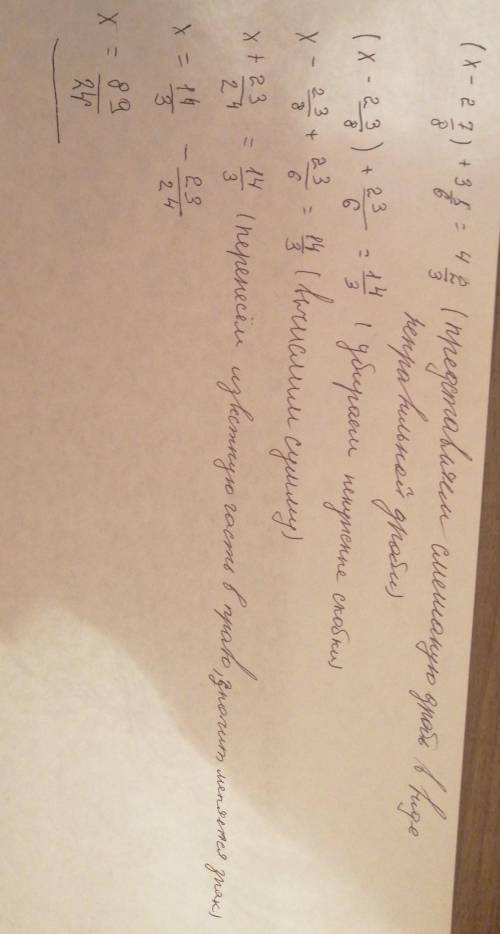 (x - 2 7/8) + 3 5/6 = 4 2/3 (представляем смешаную дробь в виде
неправильной дроби)
(x - 23/8) + 23/6 = 14/3 (убираем ненужные скобки)
x - 23/8 + 23/6 = 14/3 (вычислим сумму)
x + 23/24 = 14/3 (перенесём известную часть в право, значит меняется знак)
x = 14/3 - 23/24
x = 89/24